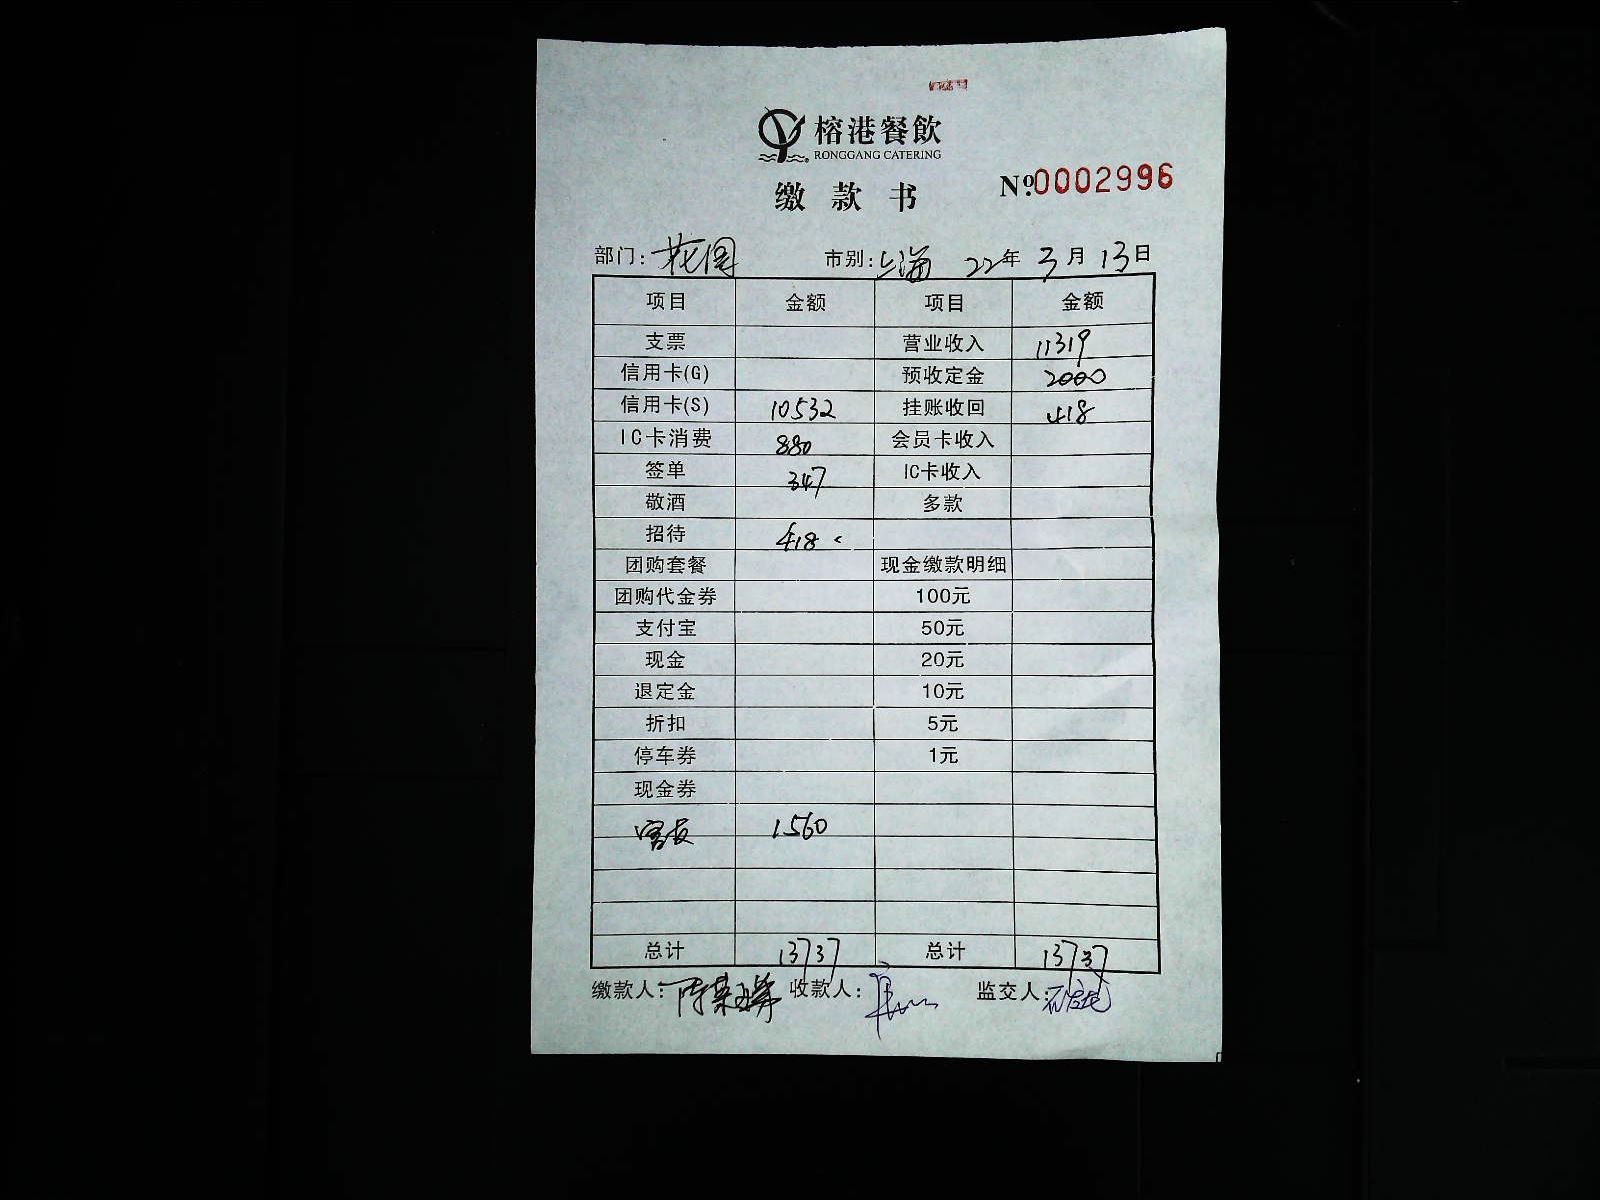 榕港餐飲
RONGGANG CATERING
缴款书
Nº.0002996
部门: 花园 市别: 上海 22年 3月 13日
项目 金额 项目 金额
支票 营业收入 11319
信用卡(G) 预收定金 2000
信用卡(S) 10532 挂账收回 418
IC卡消费 880 会员卡收入
签单 347 IC卡收入
敬酒 多款
招待 418
团购套餐 现金缴款明细
团购代金券 100元
支付宝 50元
现金 20元
退定金 10元
折扣 5元
停车券 1元
现金券
1560
总计 13737 总计 13737
缴款人: 收款人: 监交人: